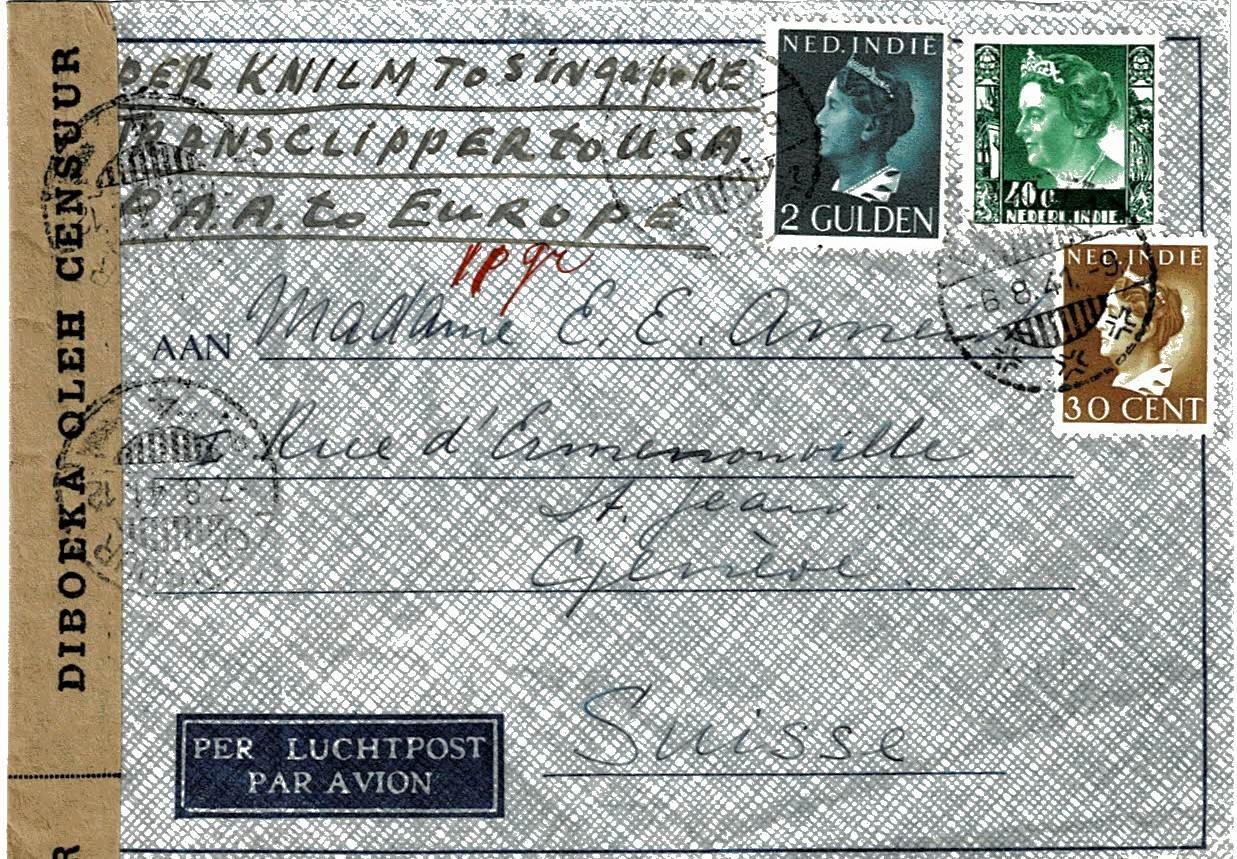 DIBOEKA OLEH CENSUUR
R
PER KNILM To SingapoRE
TRANSCLIPPER to USA
P.A.A. to EUROPE
NED. INDIË
2 GULDEN
40 c.
NEDERL. INDIE.
NED. INDIË
30 CENT
-6.8.41.-9
AAN Madame E. E.
Rue d'Ermenonville
St. Jean.
Genève.
Suisse
7.8.41
PER LUCHTPOST
PAR AVION